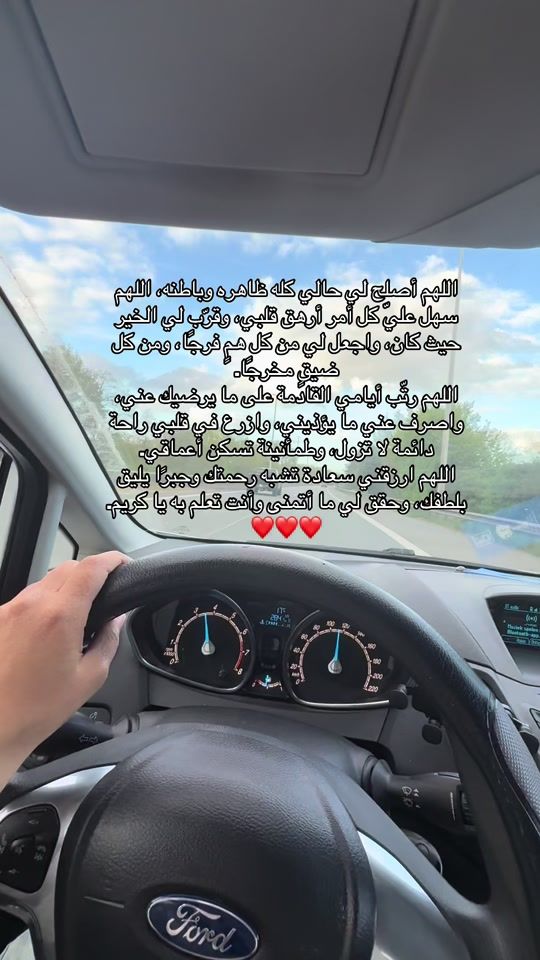 اللهم أصلح لي حالي كله ظاهره وباطنه، اللهم
سهل عليّ كل أمر أرهق قلبي، وقرّب لي الخير
حيث كان، واجعل لي من كل همٍ فرجًا، ومن كل
ضيقٍ مخرجًا.
اللهم رتّب أيامي القادمة على ما يرضيك عني،
واصرف عني ما يؤذيني، وازرع في قلبي راحة
دائمة لا تزول، وطمأنينة تسكن أعماقي.
اللهم ارزقني سعادة تشبه رحمتك وجبرًا يليق
بلطفك، وحقق لي ما أتمنى وأنت تعلم به يا كريم.
❤️❤️❤️
Ford